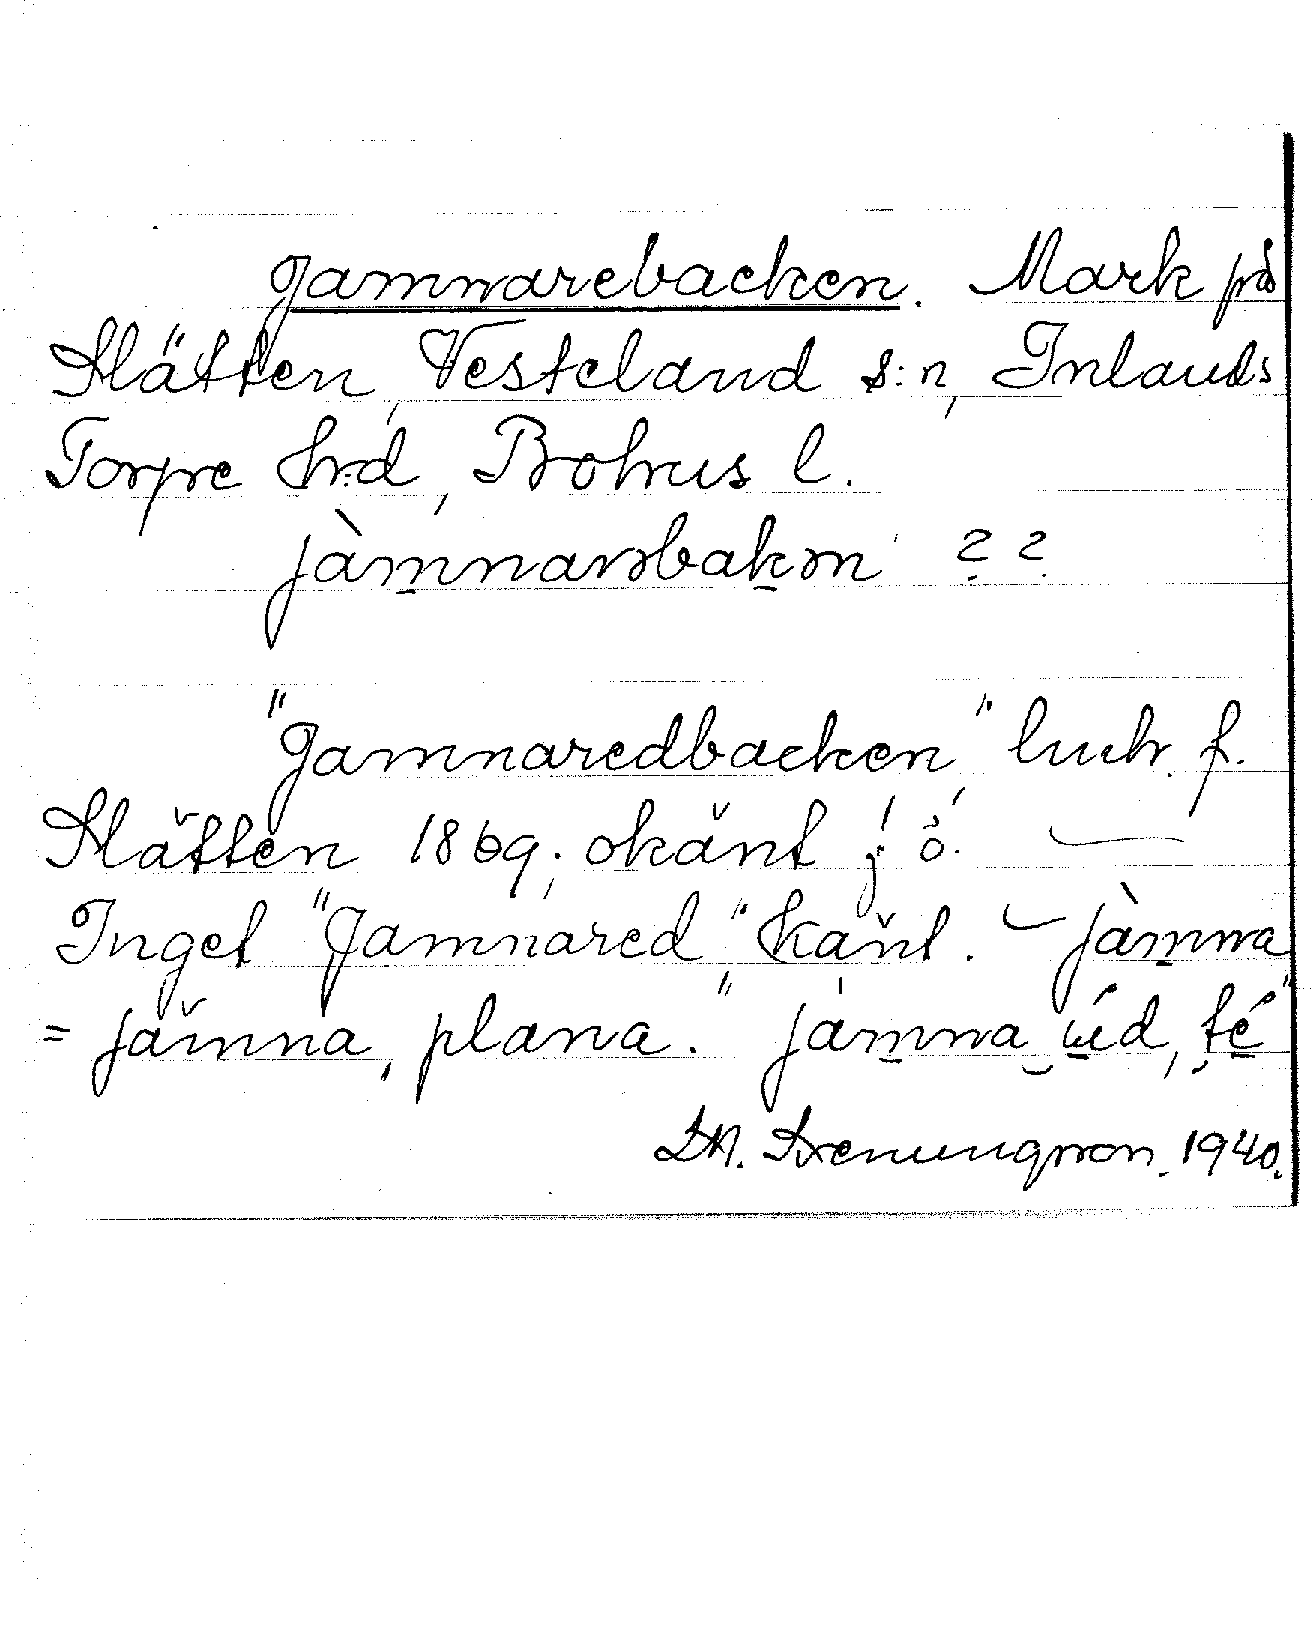 Jamnarebacken. Mark på
Slätten, Vesteland s:n, Inlands
Torpe hrd, Bohus l.
jàmnarəbakən ? ?
"Jamnaredbacken" luch. f.
Slätten 1869; okänt j. ö. —
Inget "Jamnared" känt. — jàmna
= jämna, plana." jàmna úd, té"
1940.